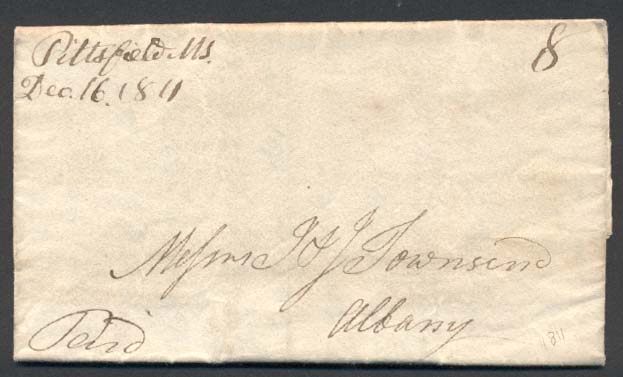 Pittsfield Ms.
8
Dec. 16. 1811
Messrs I & J Townsend
Albany
Paid
1811